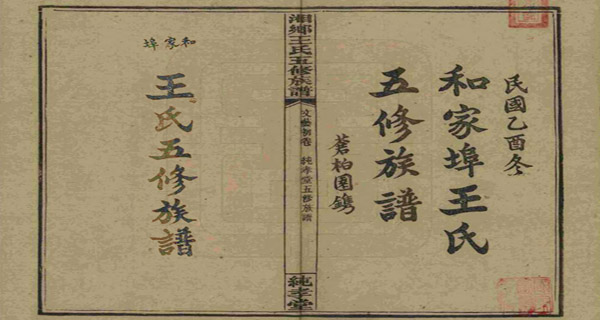 民國乙酉冬
和家埠王氏
五修族譜
蒼柏園鐫
湘鄉王氏五修族譜
文藝初卷
純孝堂五修族譜
純孝堂
和家埠
王氏五修族譜